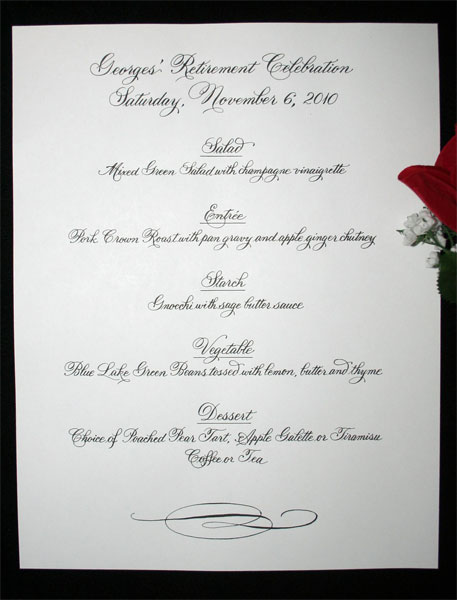 Georges' Retirement Celebration
Saturday, November 6, 2010
Salad
Mixed Green Salad with champagne vinaigrette
Entrée
Pork Crown Roast with pan gravy and apple ginger chutney
Starch
Gnocchi with sage butter sauce
Vegetable
Blue Lake Green Beans tossed with lemon, butter and thyme
Dessert
Choice of Poached Pear Tart, Apple Galette or Tiramisu
Coffee or Tea